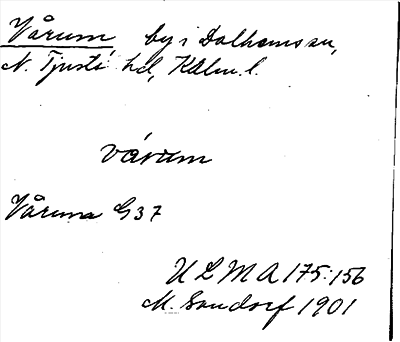 Vårum, by i Dalhems sn,
N. Tjusts hd, Kalm. l.
várum
Våruma G 37
ULMA 175:156
M. Sandorf 1901